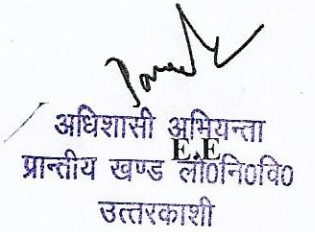 अधिशासी अभियन्ता
E.E
प्रान्तीय खण्ड लो0नि0वि0
उत्तरकाशी